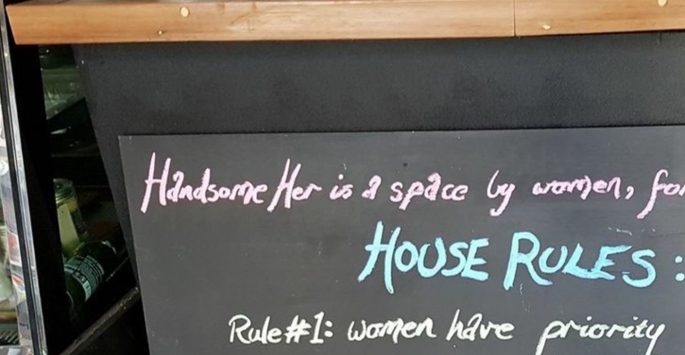 Handsome Her is a space by women, for
HOUSE RULES:
Rule #1: women have priority